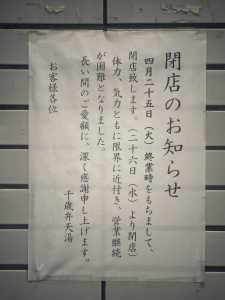 閉店のお知らせ
四月二十五日（火）終業時をもちまして、
閉店致します。（二十六日（水）より閉店）
体力、気力ともに限界に近付き、営業継続
が困難となりました。
長い間のご愛顧に、深く感謝申し上げます。
千歳弁天湯
お客様各位